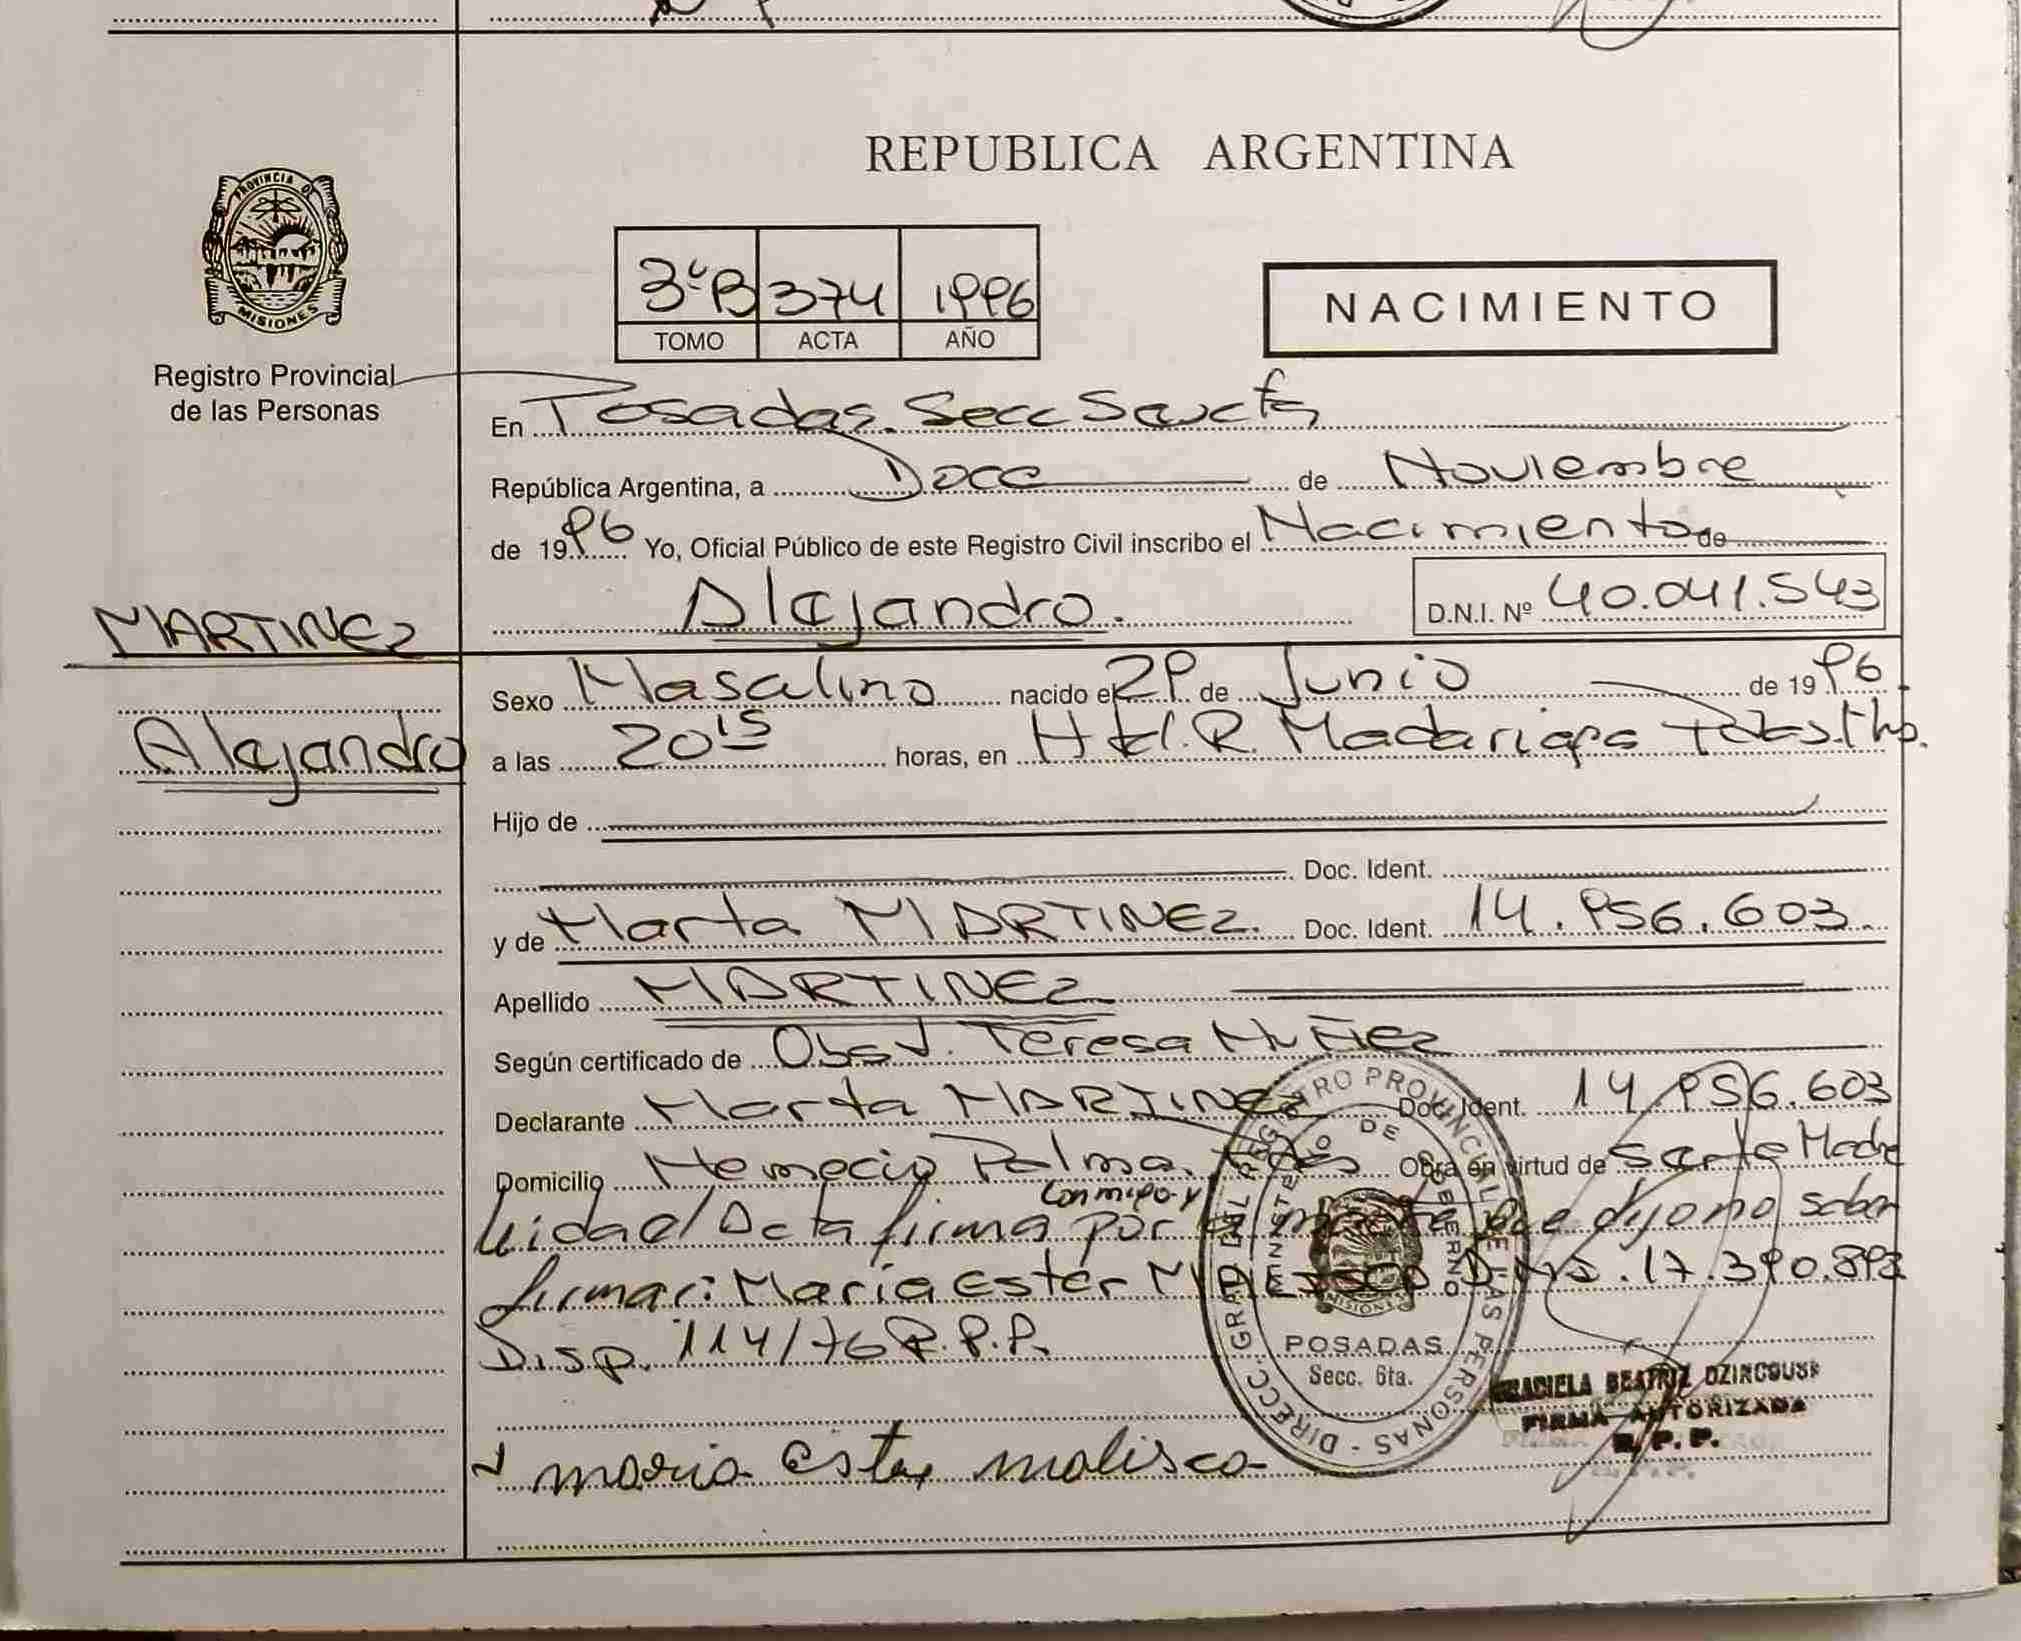 REPUBLICA ARGENTINA
PROVINCIA D
MISIONES
Registro Provincial
de las Personas
3ºB 374 1996
TOMO ACTA AÑO
NACIMIENTO
En Posadas. Secc Sexta
República Argentina, a Doce de Noviembre
de 1996 Yo, Oficial Público de este Registro Civil inscribo el Nacimiento de
Alejandro. D.N.I. Nº 40.041.543
MARTINEZ
Alejandro
Sexo Masculino nacido el 29 de Junio de 1996
a las 20 15 horas, en H R. Madariaga
Hijo de
Doc. Ident.
y de Marta MARTINEZ. Doc. Ident. 14.956.603.
Apellido MARTINEZ
Según certificado de Obst. Teresa Nuñez
Declarante Marta MARTINEZ Doc. Ident. 14.956.603
Domicilio Nemecio Palma. Obra en virtud de Madre
Leida el Acta firma conmigo y por la que dijo no saber
firmar: María Ester 17.390.893
Disp. 114/76 R.P.P.
DIRECC. GRAL DEL REGISTRO PROVINCIAL DE LAS PERSONAS -
MINISTERIO DE GOBIERNO
MISIONES
POSADAS
Secc. 6ta.
GRACIELA BEATRIZ
FIRMA AUTORIZADA
R. P. P.
maria ester molisca